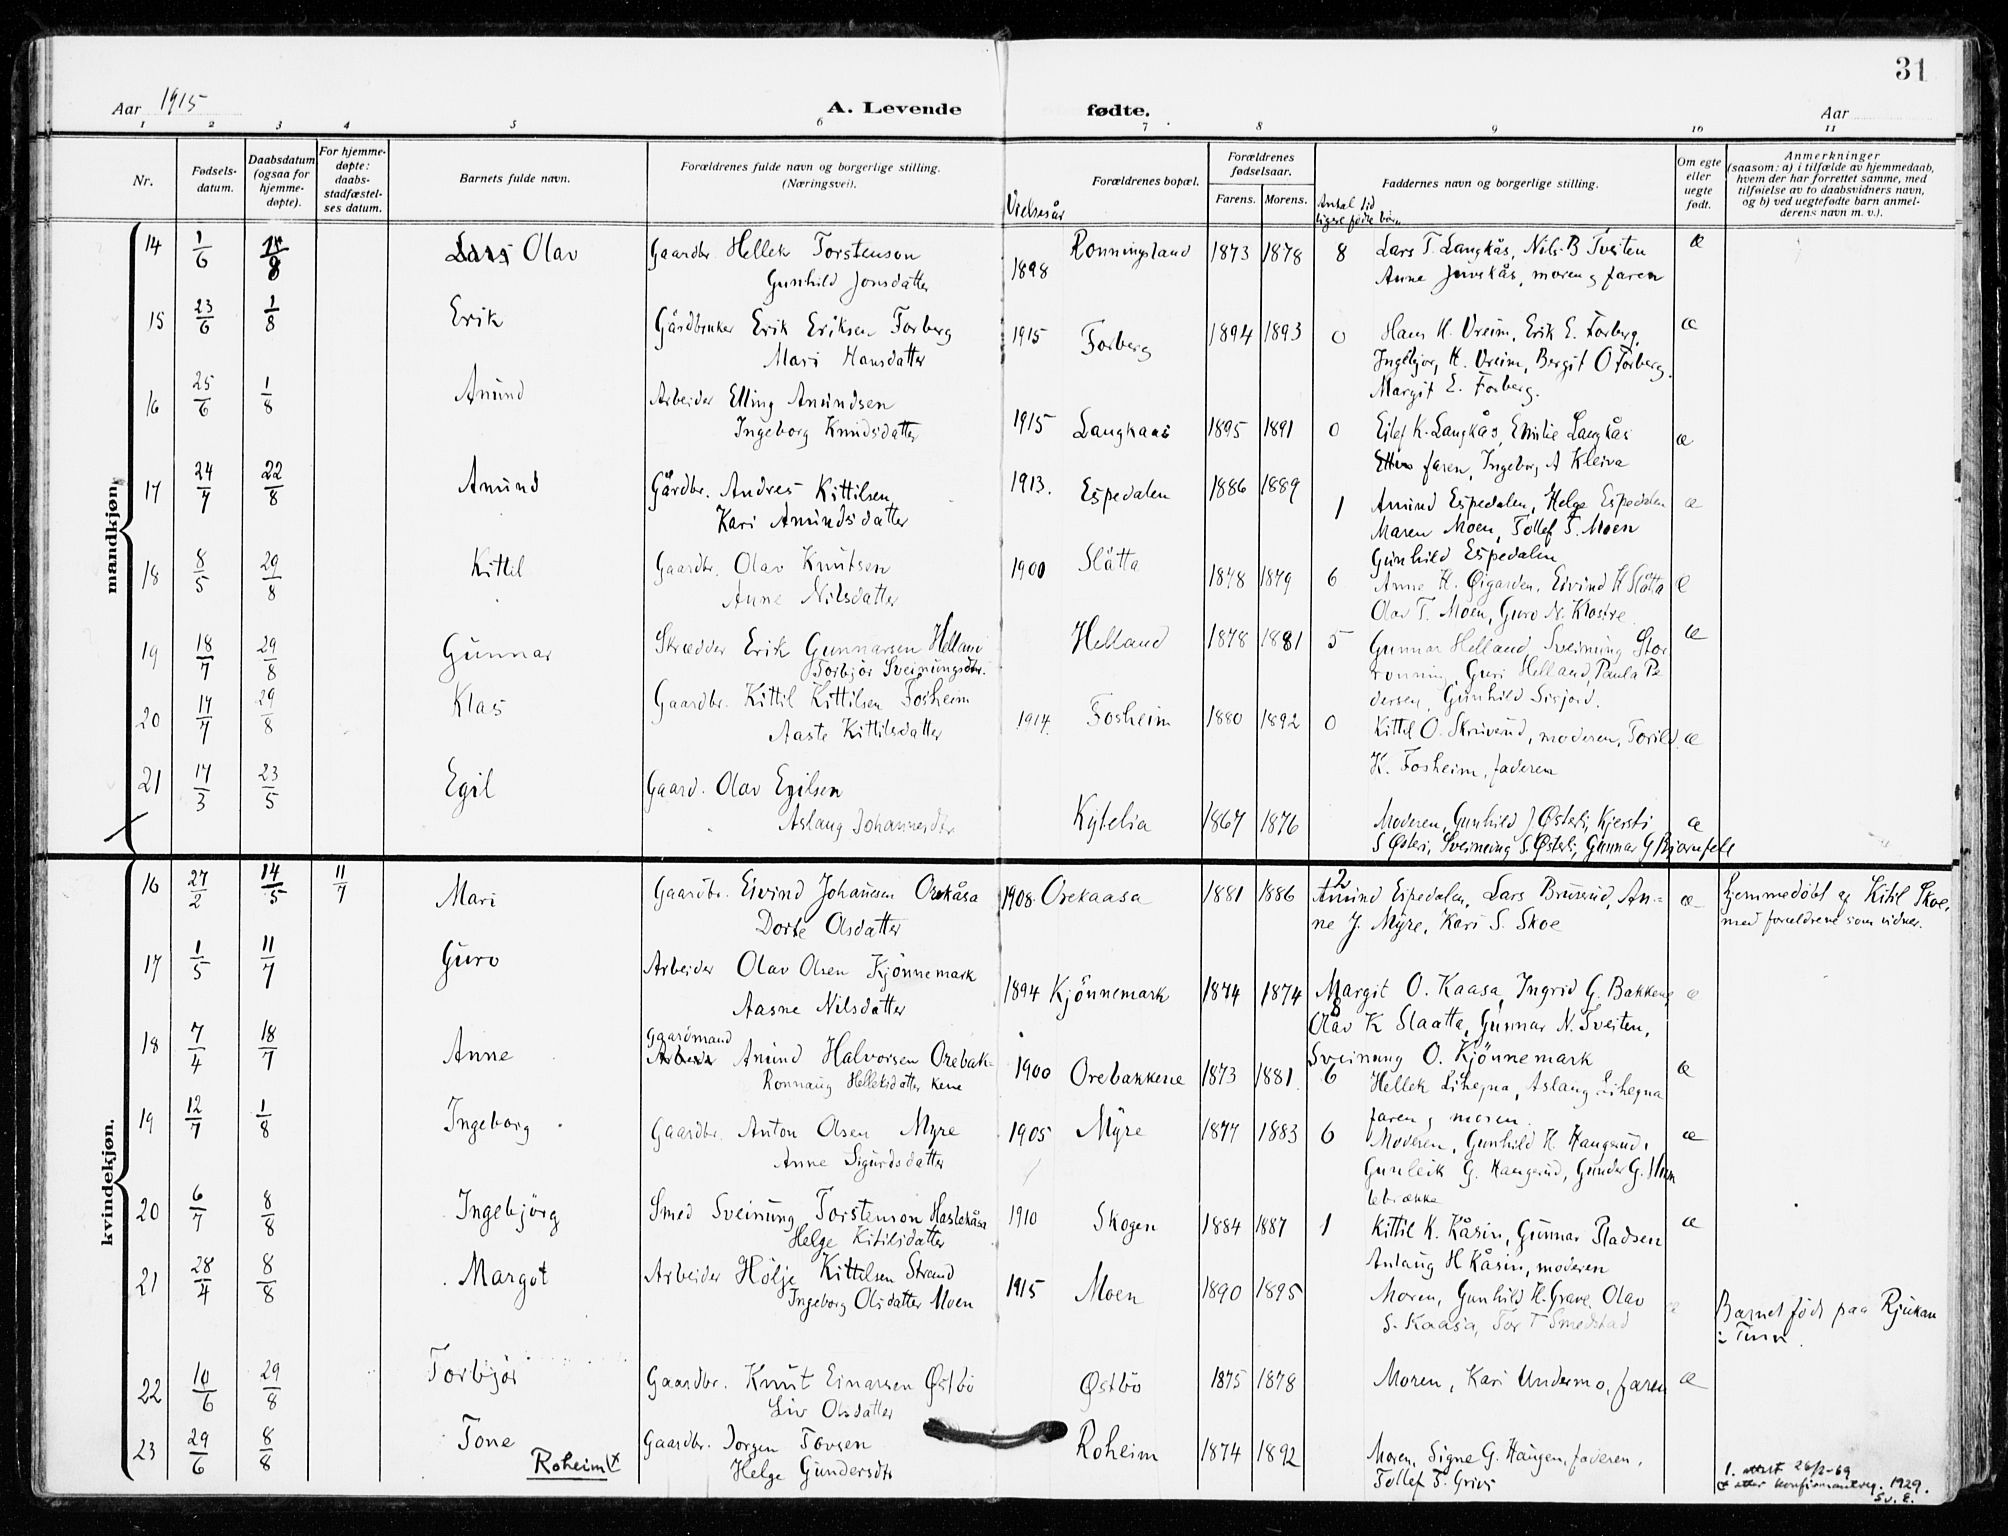 31
Aar 1915 A. Levende fødte. Aar
1 2 3 4 5 6 7 8 9 10 11
Nr.
Fødsels-datum.
Daabsdatum (ogsaa for hjemme-døpte).
For hjemme-døpte: daabs-stadfæstel-ses datum.
Barnets fulde navn.
Forældrenes fulde navn og borgerlige stilling. (Næringsvei).
Vielsesår
Forældrenes bopæl.
Forældrenes fødselsaar.
Farens. Morens.
Antal tid ligere fødte børn
Faddernes navn og borgerlige stilling.
Om egte eller uegte født.
Anmerkninger
(saasom: a) i tilfælde av hjemmedaab, hvem der har forrettet samme, med tilføielse av to daabsvidners navn, og b) ved uegtefødte barn anmel-derens navn m. v.).
mandkjøn.
14 1/6 Lars Olav Gaardbr. Hellek Torstenson 1898 Ronningsland 1873 1878 8 Lars T. Langkås, Nils B Tveiten æ
Gunhild Jonsdatter Anne Juvskås, moren og faren
15 23/6 1/8 Erik Gårdbruker Erik Eriksen Forberg 1915 Forberg 1894 1893 0 Hans H. Vreim, Erik E. Forberg, æ
Mari Hansdatter Ingebjor, H. Vreim, Bergit O Forberg.
Margit E. Forberg.
16 25/6 1/8 Amund Arbeider Elling Amundsen 1915 Langkaas 1895 1891 0 Eilef K. Langkås, Emilie Langkås æ
Ingeborg Knudsdatter faren, Ingebor, A Kleiva
17 24/7 22/8 Amund Gårdbr. Andres Kittilsen 1913. Espedalen 1886 1889 1 Amund Espedalen, Helge Espedalen æ
Kari Amundsdatter Maren Moen, Tollef T. Moen
Gunhild Espedalen
18 8/5 29/8 Kittil Gaardbr. Olav Knutsen 1900 Slåtta 1878 1879 6 Anne H. Øigarden, Eivind H Slåtta æ
Anne Nilsdatter Olav T. Moen, Guro N. Klostre
19 18/7 29/8 Gunnar Skrædder Erik Gunnarsen Helland Helland 1878 1881 5 Gunnar Helland Sveinung Stor æ
Torbjør Sveinungsdtr. ronning, Guri Helland, Paula Pe
dersen, Gunhild Lisjord.
20 17/7 29/8 Klas Gaardbr. Kittil Kittilsen Fosheim 1914. Fosheim 1880 1892 0 Kittil O. Skruverud, moderen, Torild æ
Aaste Kittilsdatter K. Fosheim, faderen
21 17/3 23/5 Egil Gaard. Olav Egilsen Kytelia 1867 1876 Moderen, Gunhild J Østerli, Kjersti æ
Aslaug Johannesdtr S Østerli, Sveinung S. Østerli, Gunnar G Bjørnfell
kvindekjøn.
16 27/2 14/5 11/7 Mari Gaardbr. Eivind Johansen Orekåsa 1908 Orekaasa 1881 1886 2 Amund Espedalen, Lars Brusrud, An- æ hjemmedøbt af Kitil Skoe,
Dorte Olsdatter ne J. Myre, Kari S. Skoe med forældrene som vidner.
17 1/5 11/7 Guro Arbeider Olav Olsen Kjønnemark 1894 Kjönnemark 1874 1874 8 Margit O. Kaasa, Ingrid G. Bakkene æ
Aasne Nilsdatter Olav K Slaatta, Gunnar N. Tveiten,
Sveinung O. Kjönnemark
18 7/4 18/7 Anne Gaardmand Amund Halvorsen Orebak- 1900 Orebakkene 1873 1881 6 Hellek Lihegna, Aslaug Lihegna æ
Ronnaug Helleksdatter kene faren og moren.
19 12/7 1/8 Ingeborg Gaardbr. Anton Olsen Myre 1905 Myre 1877 1883 6 Moderen, Gunhild H. Haugerud, æ
Anne Sigurdsdatter Gunleik G. Haugerud, Gunder G.
20 6/7 8/8 Ingebjörg Smed Sveinung Torstenson Haslekåsa 1910 Skogen 1884 1887 1 Kittil K. Kåsin, Gunnar Pladsen æ
Helge Kitilsdatter Anlaug H Kåsin, moderen
21 28/4 8/8 Margot Arbeider Hølje Kittilsen Strand 1915 Moen 1890 1895 Moren, Gunhild H. Grave, Olav æ Barnet født paa Rjukan
Ingeborg Olsdatter Moen S. Kaasa, Tor T Smedstad i Tinn.
22 10/6 29/8 Torbjør Gaardbr. Knut Einarsen Østbö Østbö 1875 1878 Moren, Kari Undermo, faren æ
Liv Olsdatter
23 29/6 8/8 Tone Gaardbr. Jorgen Tovsen Roheim 1874 1892 Moren, Signe G. Haugen, faderen,
Roheim Helge Gundersdtr Tollef T. Grivi
1. attest 26/2-69
etter konfirmantreg. 1929.
Sv. E.